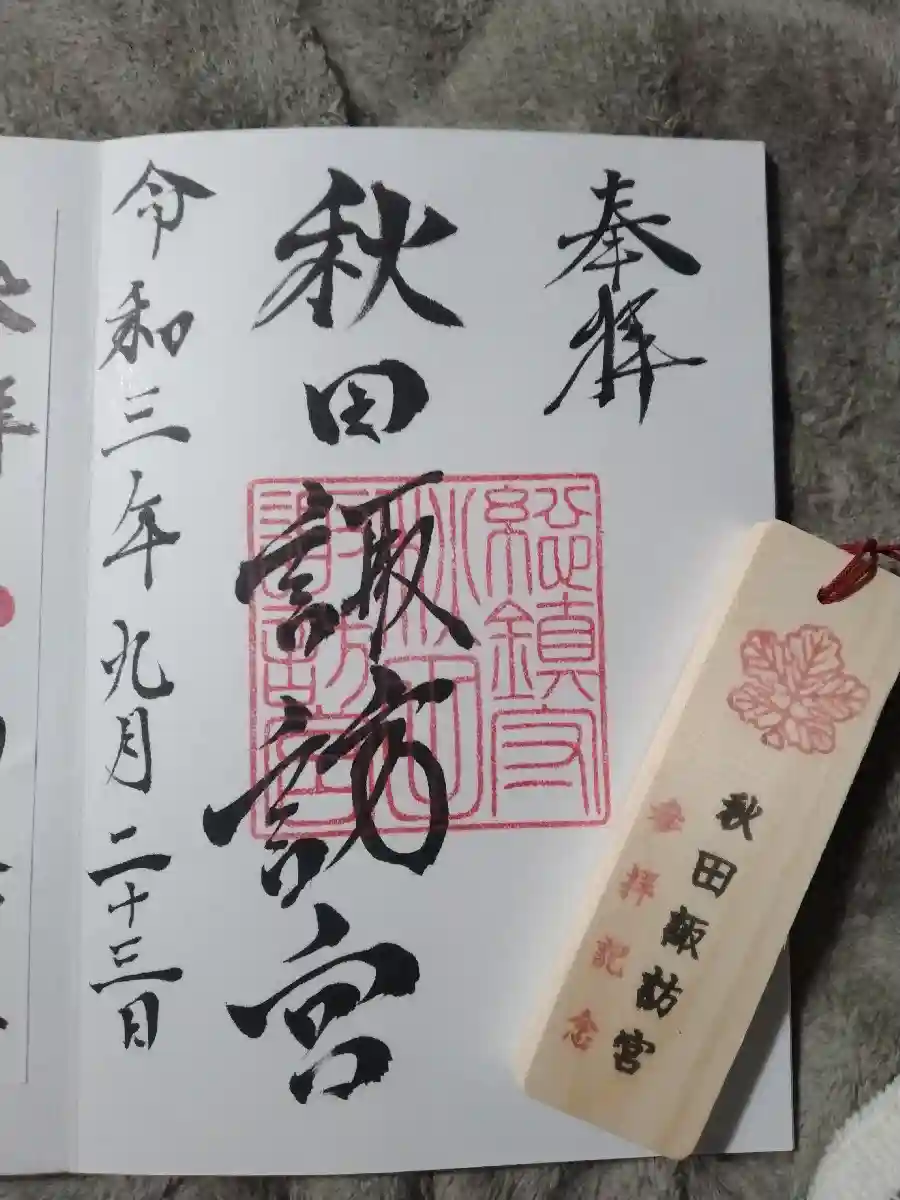 奉拝
秋田諏訪宮
総鎮守
秋田
諏訪宮
令和三年九月二十三日
秋田諏訪宮
参拝記念